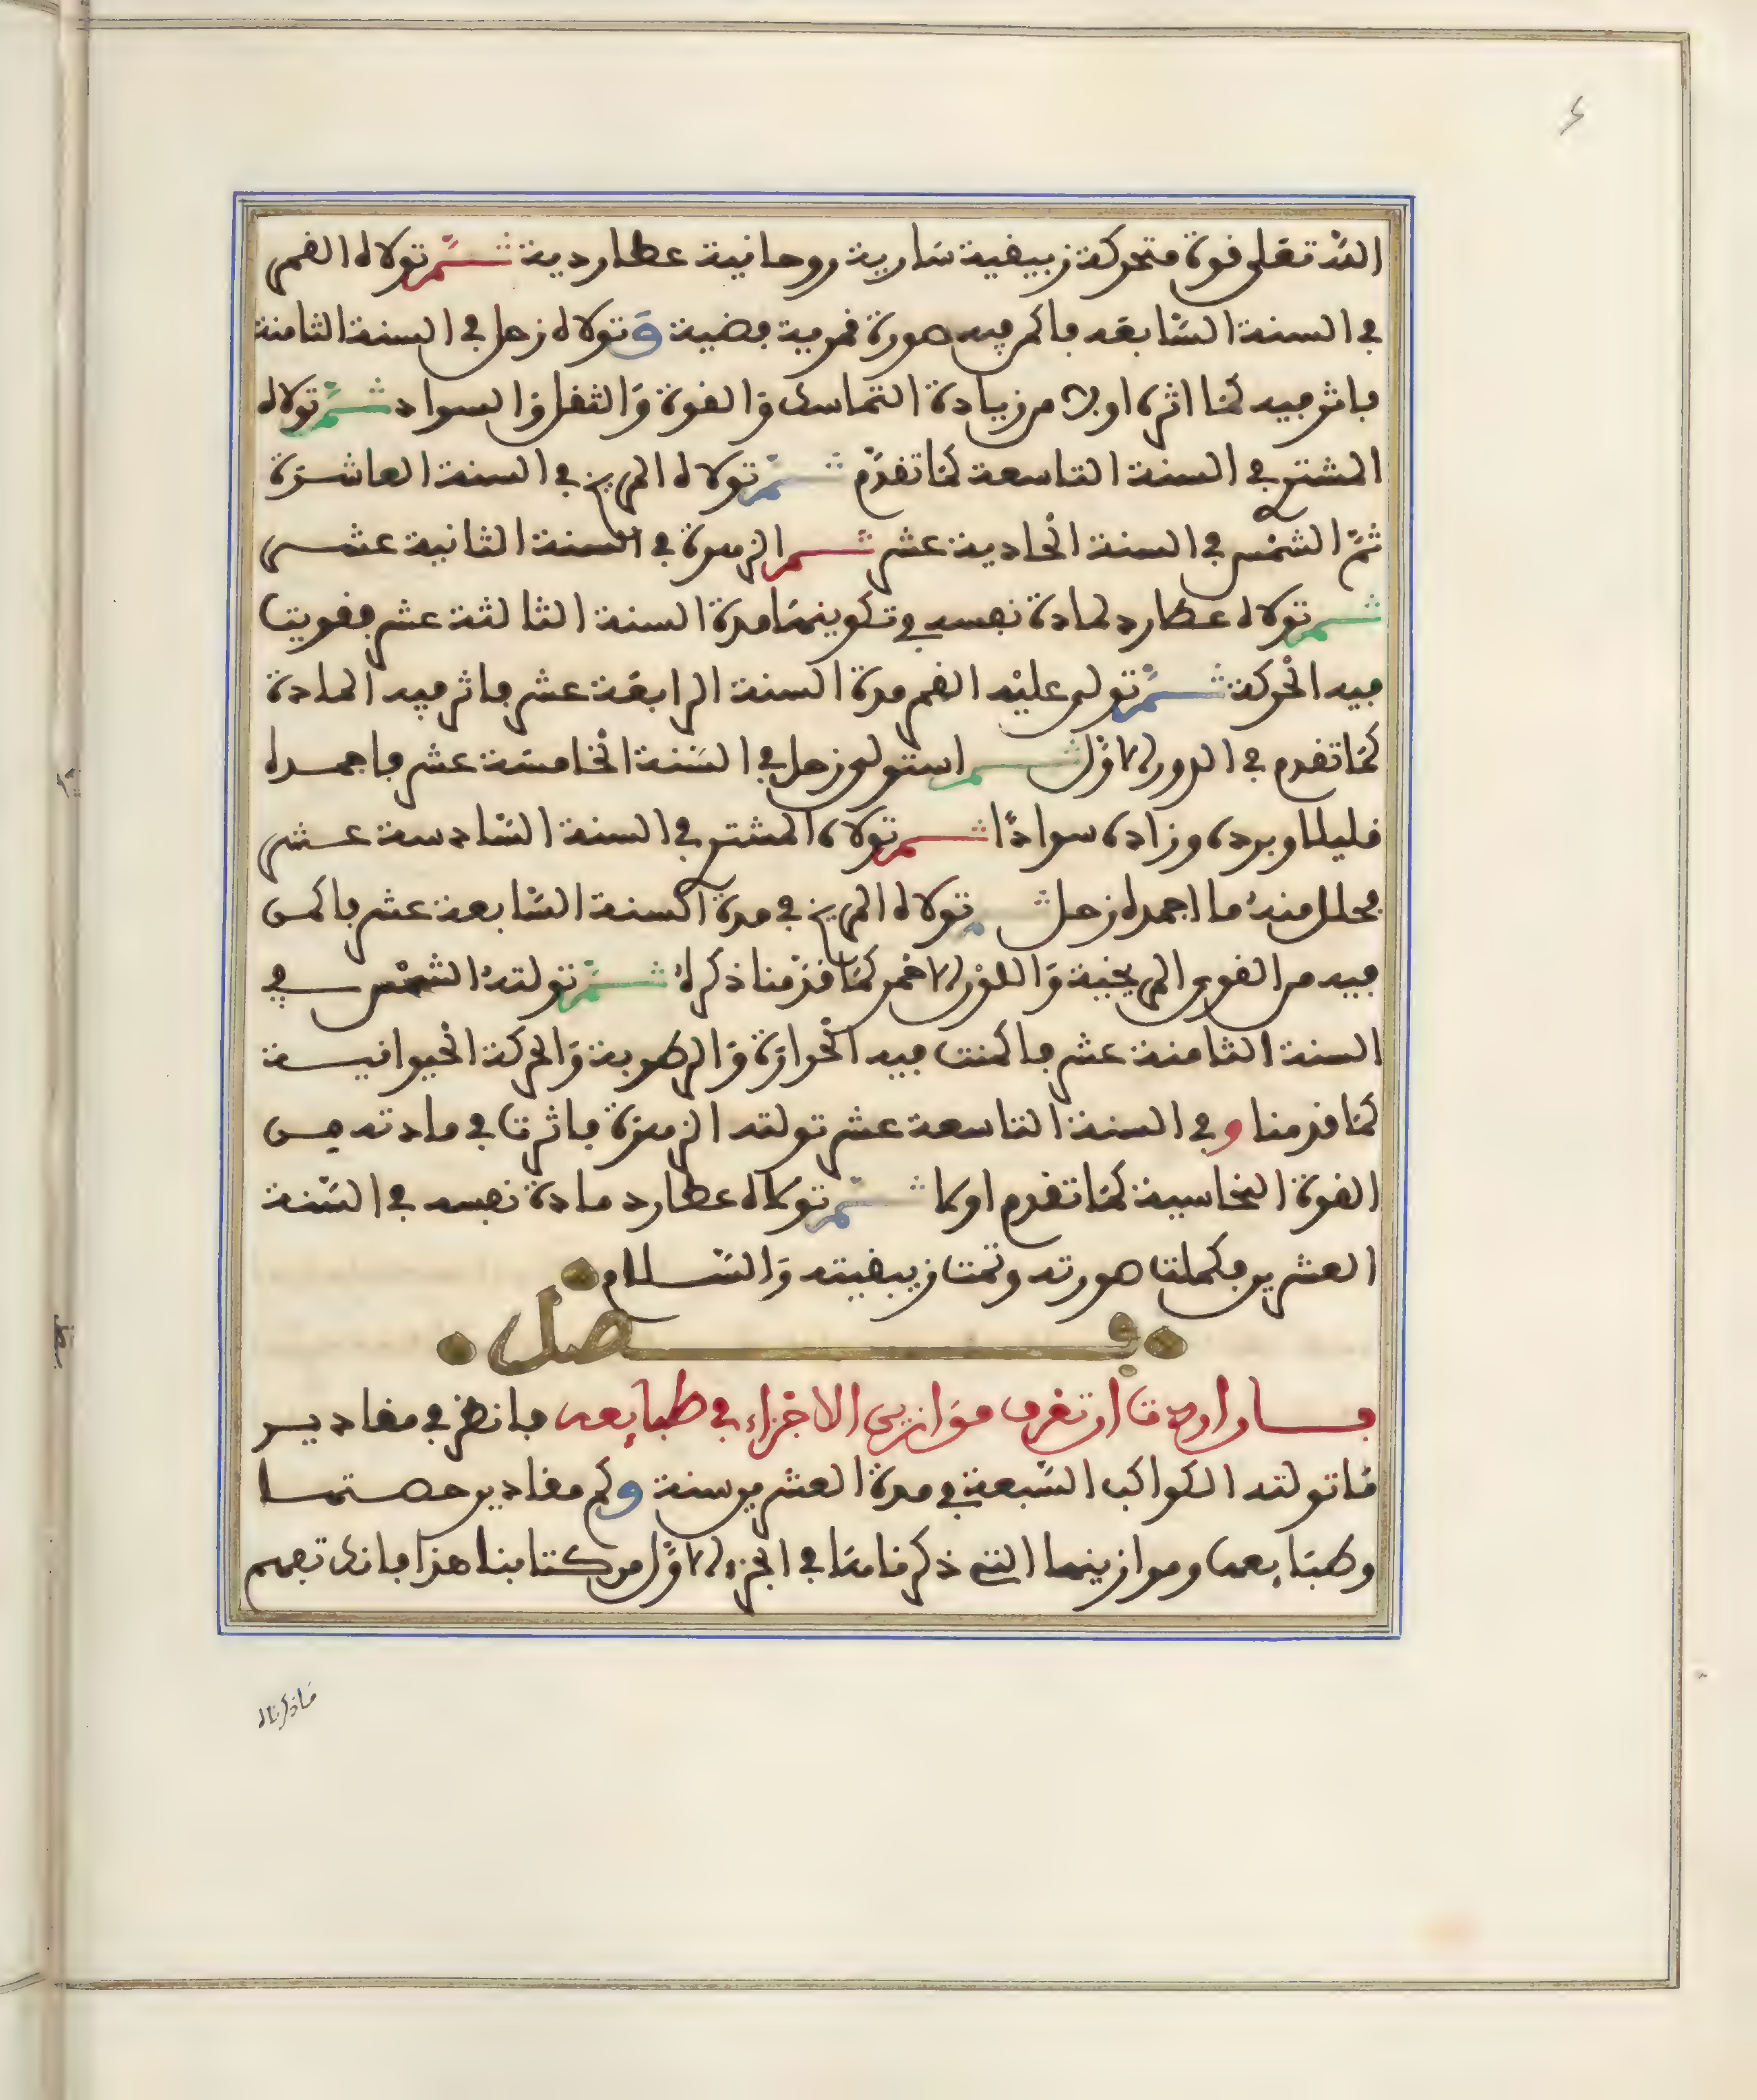 الله تعلى قوة متحركة زيبقية سارية روحانية عطاردية ثم تولاه القمر
في السنة السابعه فاكمن فيه صورة قمرية فضية وتولاه زحل في السنة الثامنة
فاثر فيه كما اثره اولا من زيادة التماسك والقوة والثقل والسواد ثم تولاه
المشتري في السنة التاسعة كما تقدم ثم تولاه المريخ في السنة العاشرة
ثم الشمس في السنة الحادية عشر ثم الزهرة في السنة الثانية عشر
ثم تولاه عطارد لمادة نفسه في تكوينها مدة السنة الثالثة عشر فقويت
فيه الحركة ثم تولى عليه القمر مدة السنة الرابعة عشر فاثر فيه المادة
كما تقدم في الدور الاول ثم استولى زحل في السنة الخامسة عشر فاجمده
قليلا وبرده وزاده سوادا ثم تولاه المشتري في السنة السادسة عشر
فحلل منه ما اجمده زحل ثم تولاه المريخ في مدة السنة السابعة عشر فاكمن
فيه من القوى المريخية واللون الاحمر كما قدمنا ذكره ثم تولته الشمس في
السنة الثامنة عشر فاكمنت فيه الحرارة والرطوبة والحركة الحيوانية
كما قدمنا وفي السنة التاسعة عشر تولته الزهرة فاثرت في مادته من
القوة النحاسية كما تقدم اولا ثم تولاه عطارد مادة نفسه في السنة
العشرين فكملت صورته وتمت زيبقيته والسلام
فصل
فان اردت ان تعرف موازين الاجزاء في طبايعه فانظر في مقادير
ما تولته الكواكب السبعة في مدة العشرين سنة وكم مقادير حصتها
وطبايعها وموازينها التي ذكرناها في الجزء الاول من كتابنا هذا فانك تفهم
ماذكرناه